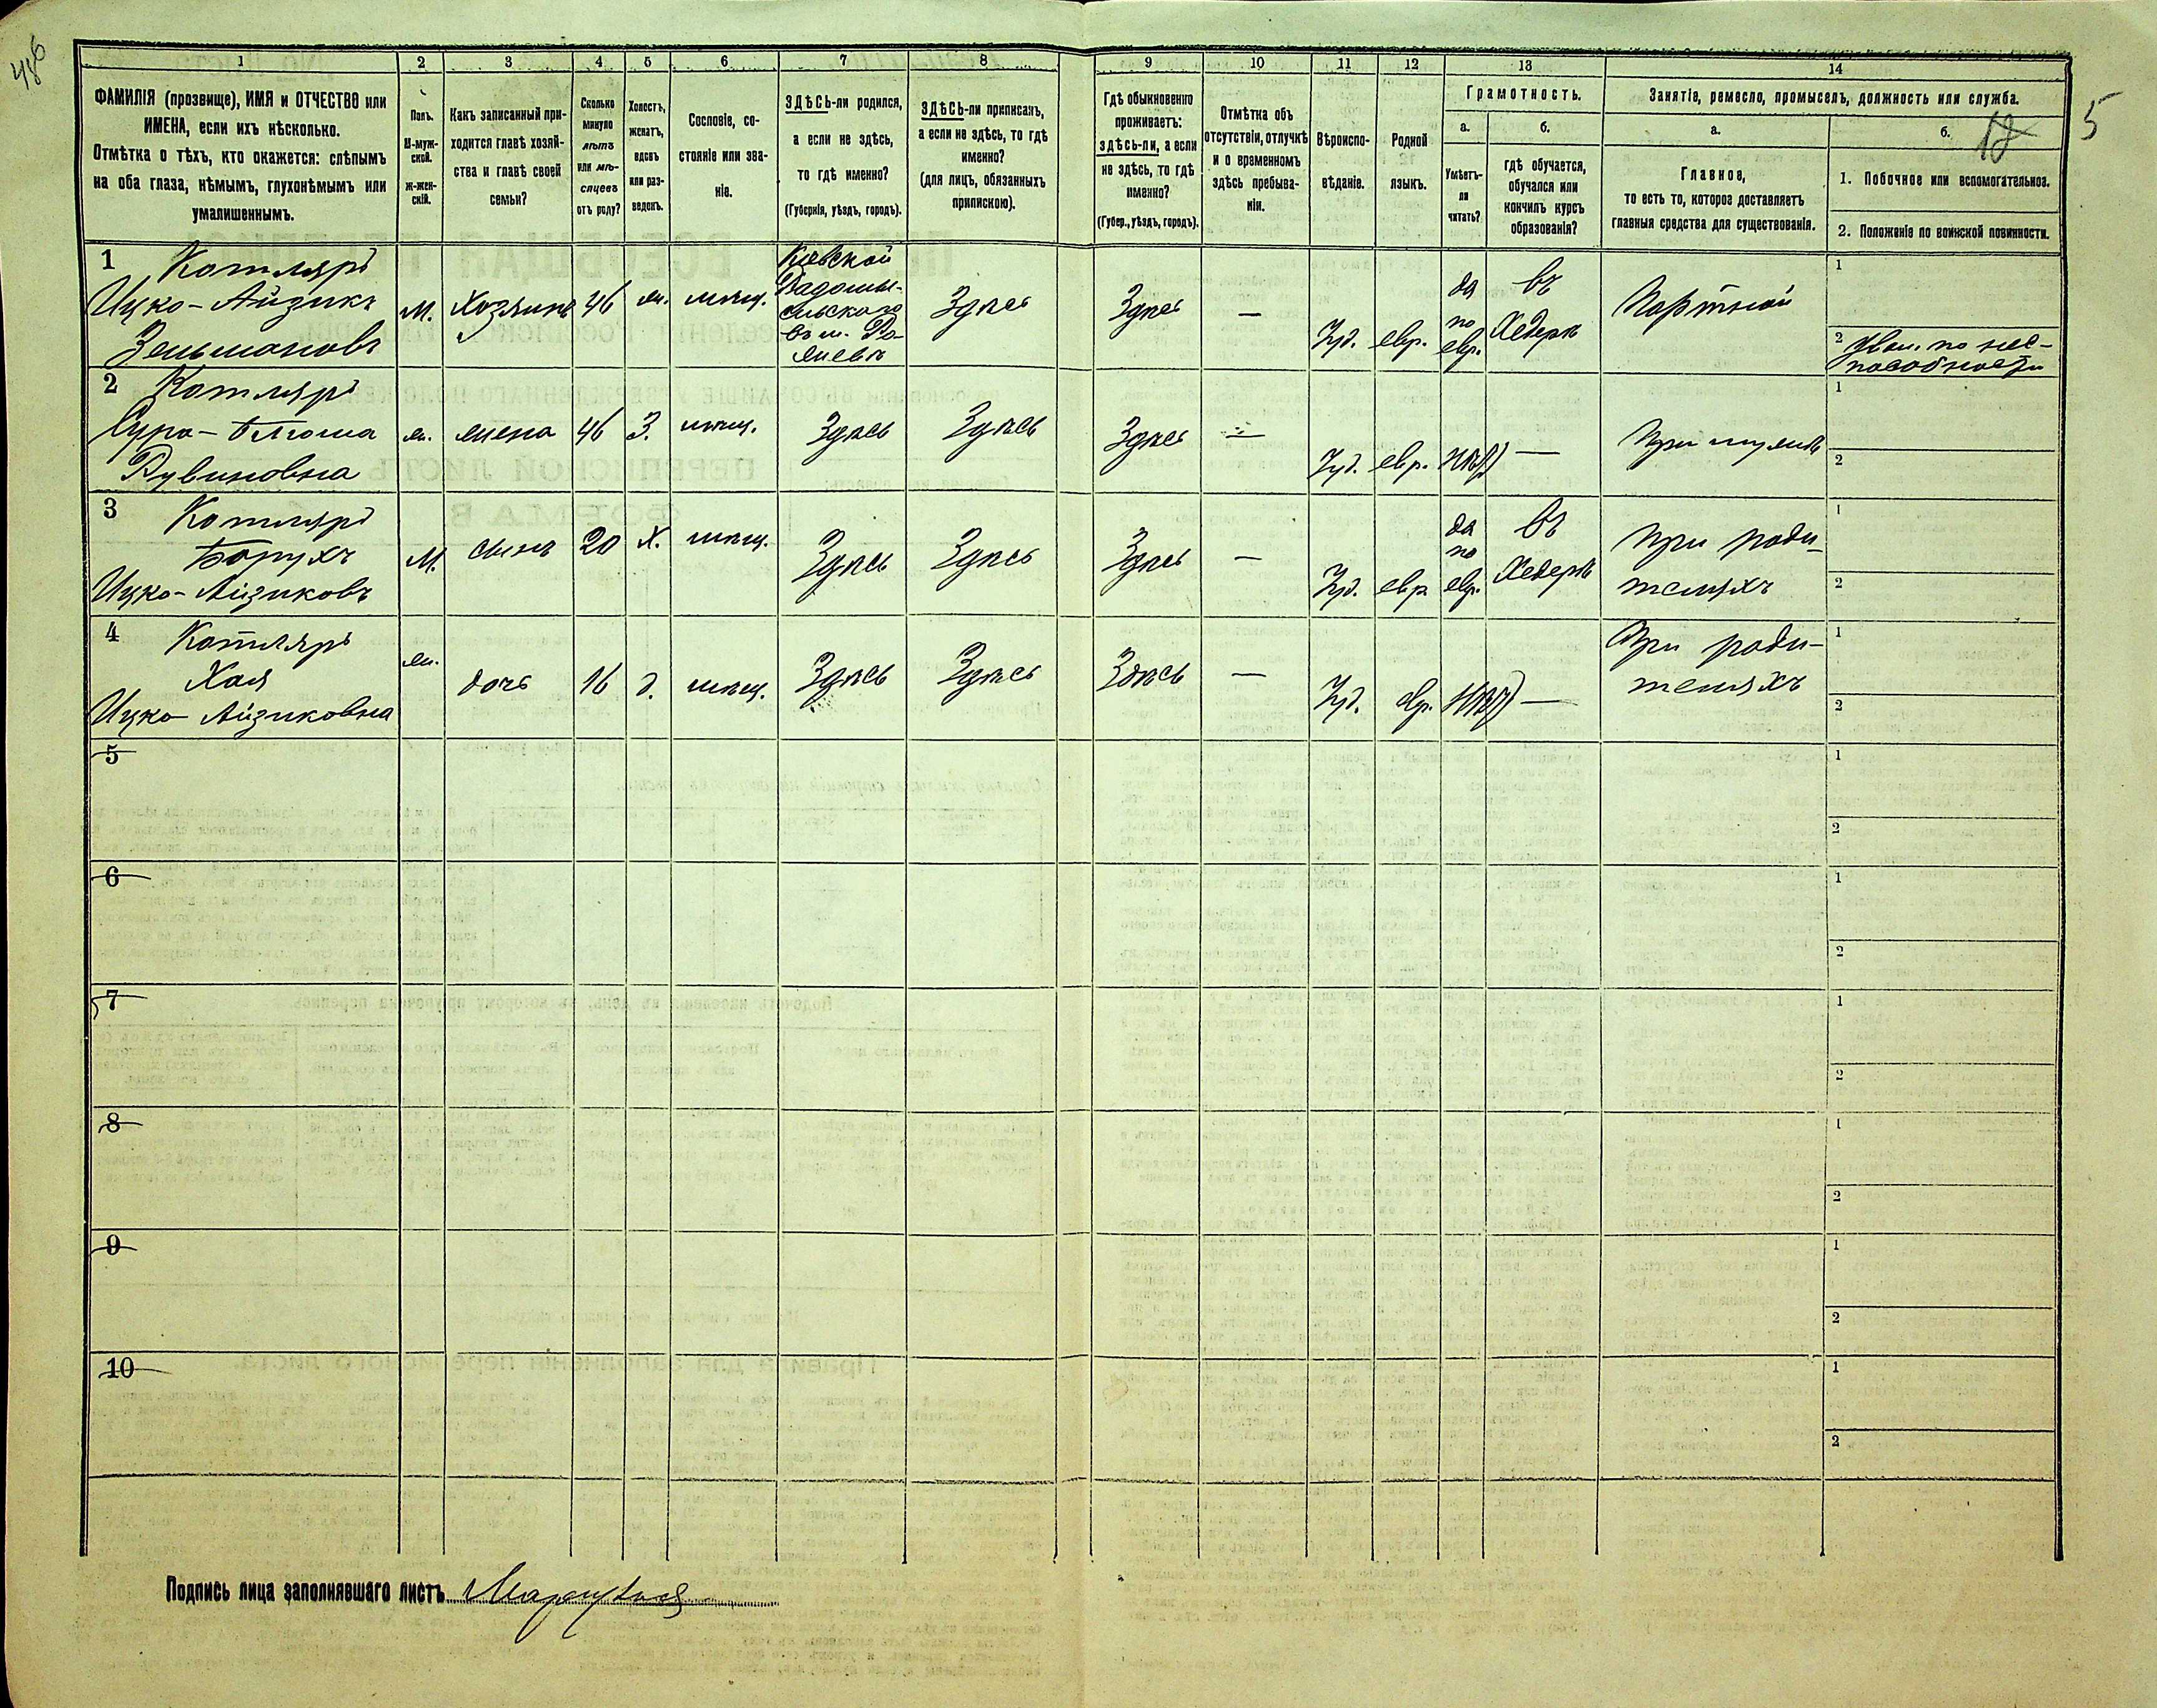 486
1 2 3 4 5 6 7 8 9 10 11 12 13 14
ФАМИЛІЯ (прозвище), ИМЯ и ОТЧЕСТВО или
ИМЕНА, если ихъ нѣсколько.
Отмѣтка о тѣхъ, кто окажется: слѣпымъ
на оба глаза, нѣмымъ, глухонѣмымъ или
умалишеннымъ.
Полъ.
М-муж-
ской.
ж-жен-
скій.
Какъ записанный при-
ходится главѣ хозяй-
ства и главѣ своей
семьи?
Сколько
минуло
лѣтъ
или мѣ-
сяцевъ
отъ роду?
Холостъ,
женатъ,
вдовъ
или раз-
веденъ.
Сословіе, со-
стояніе или зва-
ніе.
ЗДѢСЬ-ли родился,
а если не здѣсь,
то гдѣ именно?
(Губернія, уѣздъ, городъ).
ЗДѢСЬ-ли приписанъ,
а если не здѣсь, то гдѣ
именно?
(для лицъ, обязанныхъ
припискою).
Гдѣ обыкновенно
проживаетъ:
здѣсь-ли, а если
не здѣсь, то гдѣ
именно?
(Губер., уѣздъ, городъ).
Отмѣтка объ
отсутствіи, отлучкѣ
и о временномъ
здѣсь пребыва-
ніи.
Вѣроиспо-
вѣданіе.
Родной
языкъ.
Грамотность.
а.
Умѣетъ-
ли
читать?
б.
гдѣ обучается,
обучался или
кончилъ курсъ
образованія?
Занятіе, ремесло, промыселъ, должность или служба.
а.
Главное,
то есть то, которое доставляетъ
главныя средства для существованія.
б.
1. Побочное или вспомогательное.
2. Положеніе по воинской повинности.
12
5
1 Котляръ
Ицко-Айзикъ
Зельмановъ
М.
Хозяинъ
46
ж.
мѣщ.
Кіевской
Радомы-
сльскаго
въ м.
Здѣсь
Здѣсь
—
Іуд.
евр.
да
по
евр.
въ
Хедерѣ
Портной
1
2 Увол. по нес-
пособности
2 Котляръ
Сура-
Рувиновна
ж.
жена
46
З.
мѣщ.
Здѣсь
Здѣсь
Здѣсь
—
Іуд.
евр.
нѣтъ
—
При мужѣ
1
2
3 Котляръ
Борухъ
Ицко-Айзиковъ
М.
сынъ
20
Х.
мѣщ.
Здѣсь
Здѣсь
Здѣсь
—
Іуд.
евр.
да
по
евр.
въ
Хедерѣ
При роди-
теляхъ
1
2
4 Котляръ
Хая
Ицко-Айзиковна
ж.
дочь
16
д.
мѣщ.
Здѣсь
Здѣсь
Здѣсь
—
Іуд.
евр.
нѣтъ
—
При роди-
теляхъ
1
2
5
1
2
6
1
2
7
1
2
8
1
2
9
1
2
10
1
2
Подпись лица заполнявшаго листъ